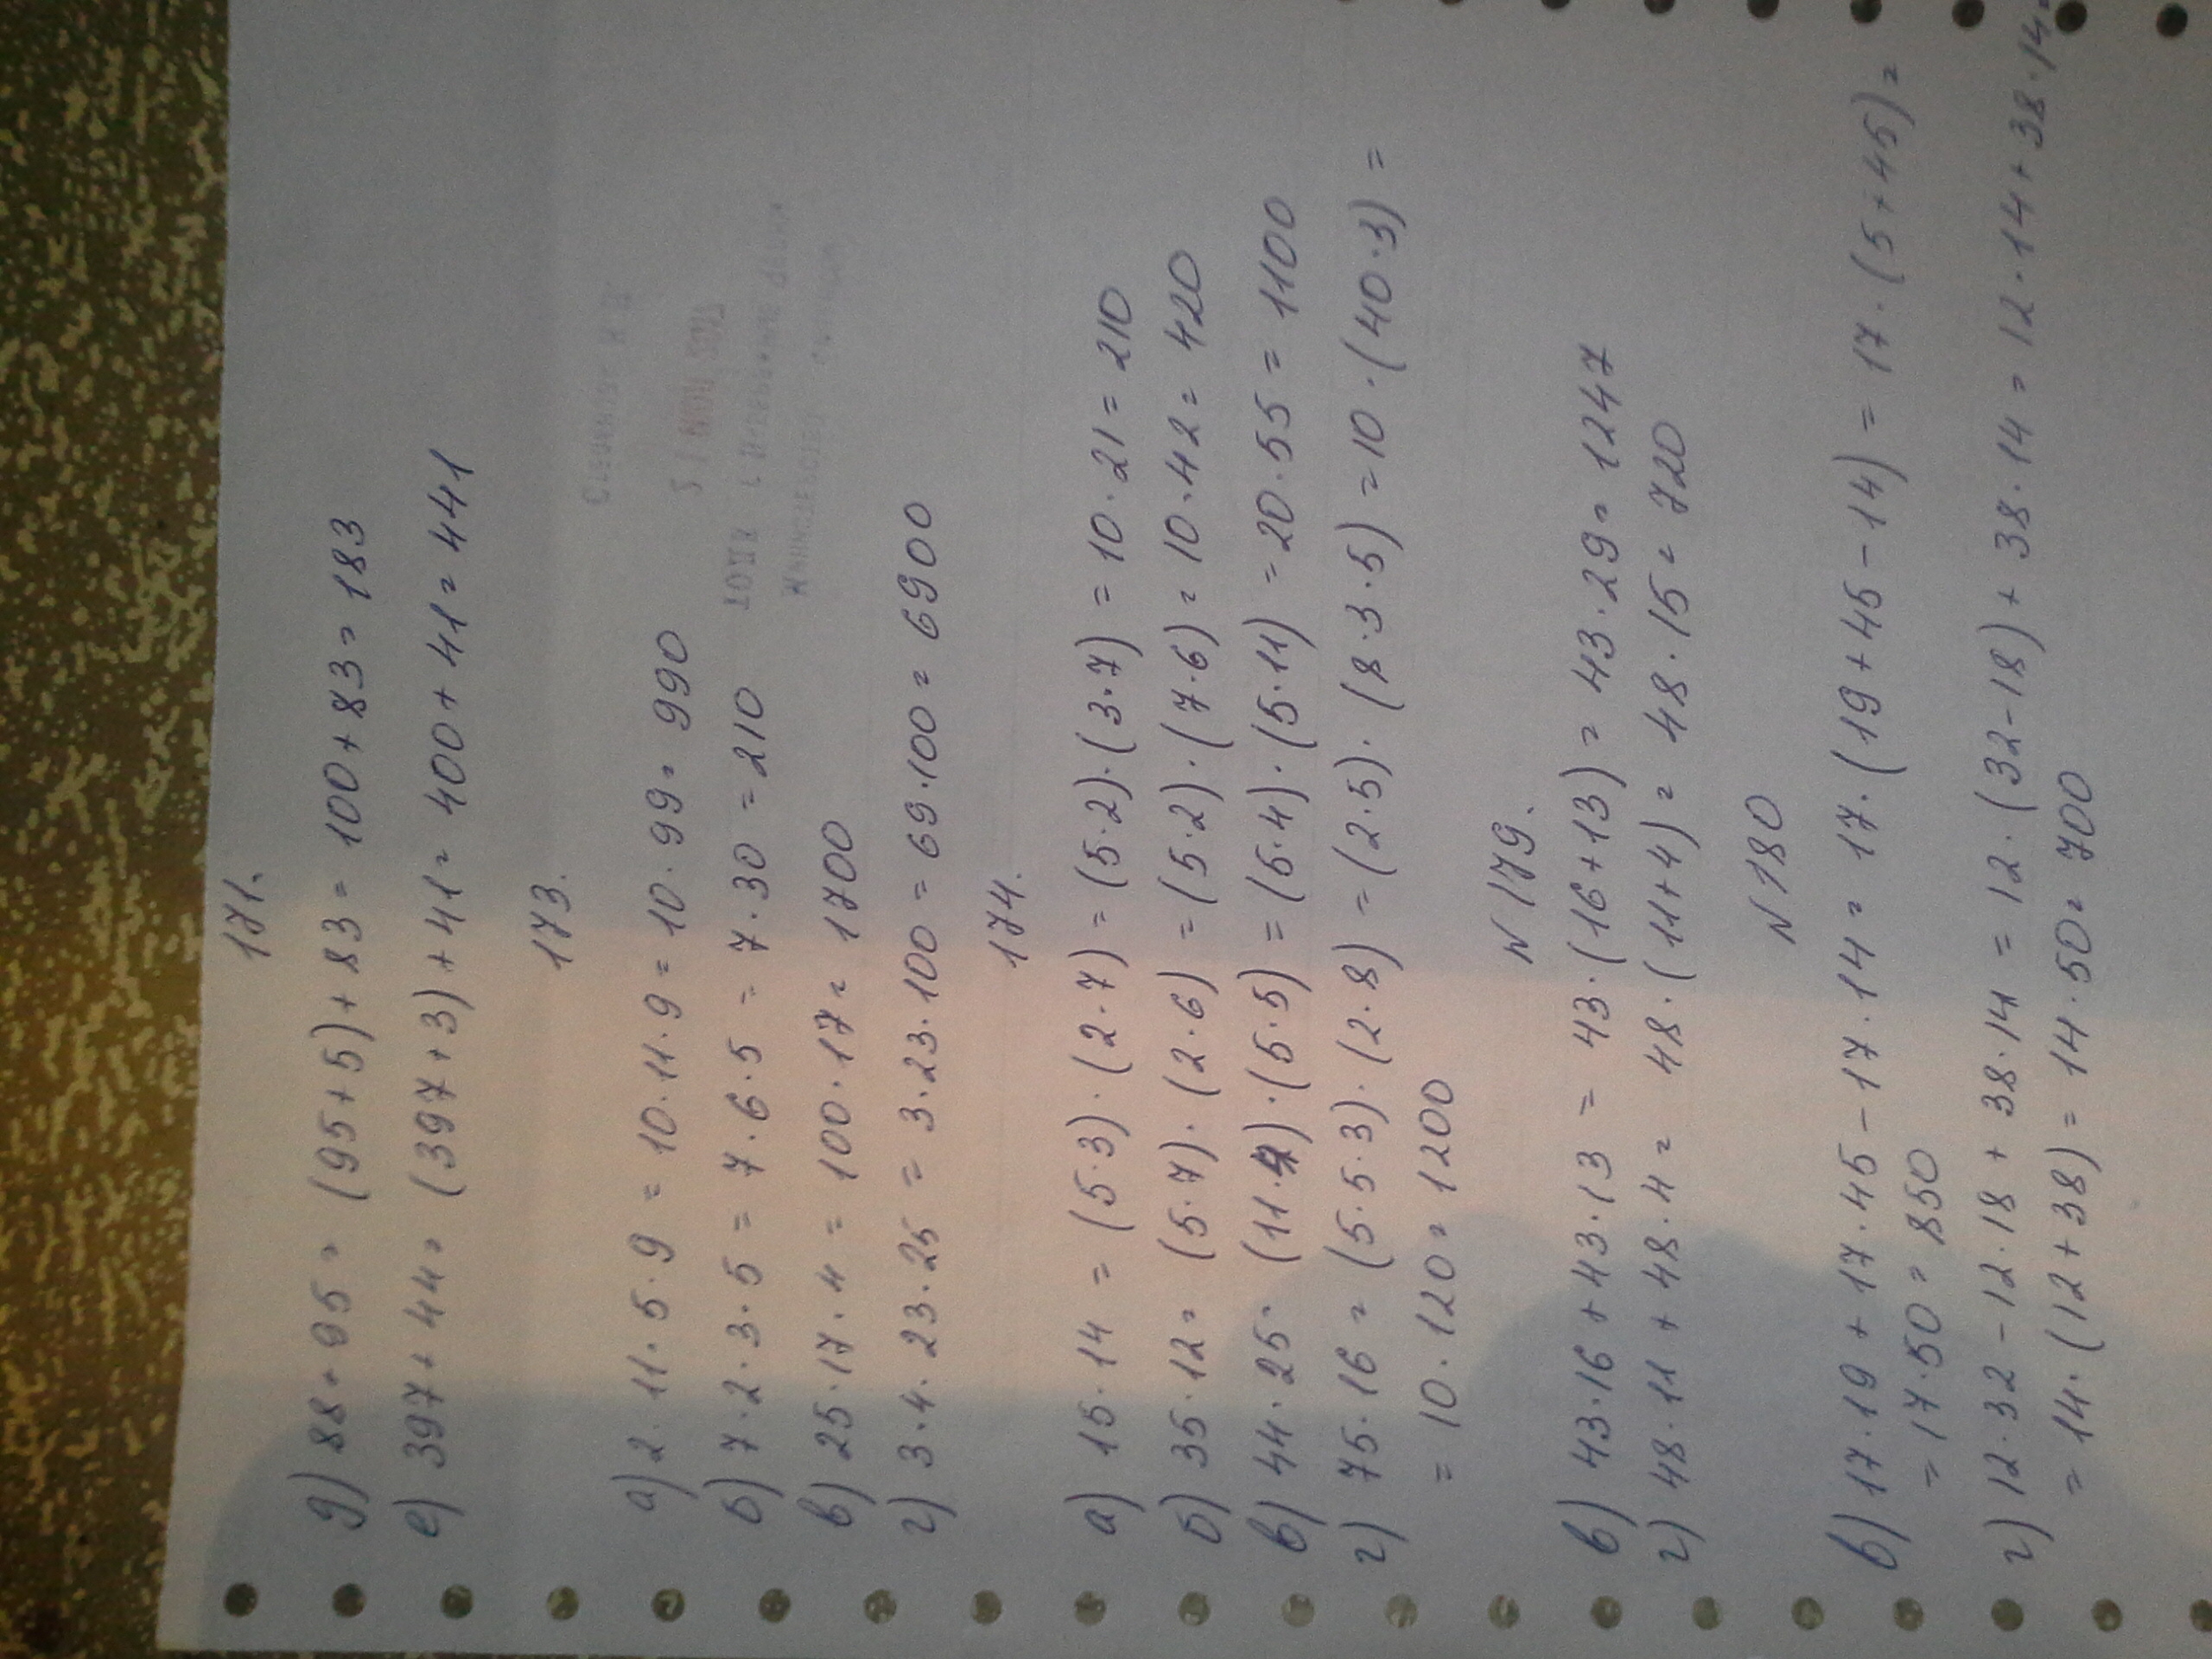 171.
д) 88+95 = (95+5)+83 = 100+83 = 183
е) 397+44 = (397+3)+41 = 400+41 = 441
173.
а) 2·11·5·9 = 10·11·9 = 10·99 = 990
б) 7·2·3·5 = 7·6·5 = 7·30 = 210
в) 25·17·4 = 100·17 = 1700
г) 3·4·23·25 = 3·23·100 = 69·100 = 6900
174.
а) 15·14 = (5·3)·(2·7) = (5·2)·(3·7) = 10·21 = 210
б) 35·12 = (5·7)·(2·6) = (5·2)·(7·6) = 10·42 = 420
в) 44·25 = (11·4)·(5·5) = (5·4)·(5·11) = 20·55 = 1100
г) 75·16 = (5·5·3)·(2·8) = (2·5)·(8·3·5) = 10·(40·3) =
= 10·120 = 1200
N 179.
в) 43·16+43·13 = 43·(16+13) = 43·29 = 1247
г) 48·11+48·4 = 48·(11+4) = 48·15 = 720
N 180
в) 17·19+17·45-17·14 = 17·(19+45-14) = 17·(5+45) =
= 17·50 = 850
г) 12·32-12·18+38·14 = 12·(32-18)+38·14 = 12·14+38·14 =
= 14·(12+38) = 14·50 = 700